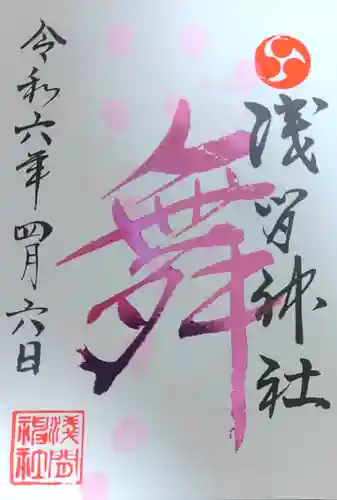 浅間神社
舞
令和六年四月六日
浅間神社